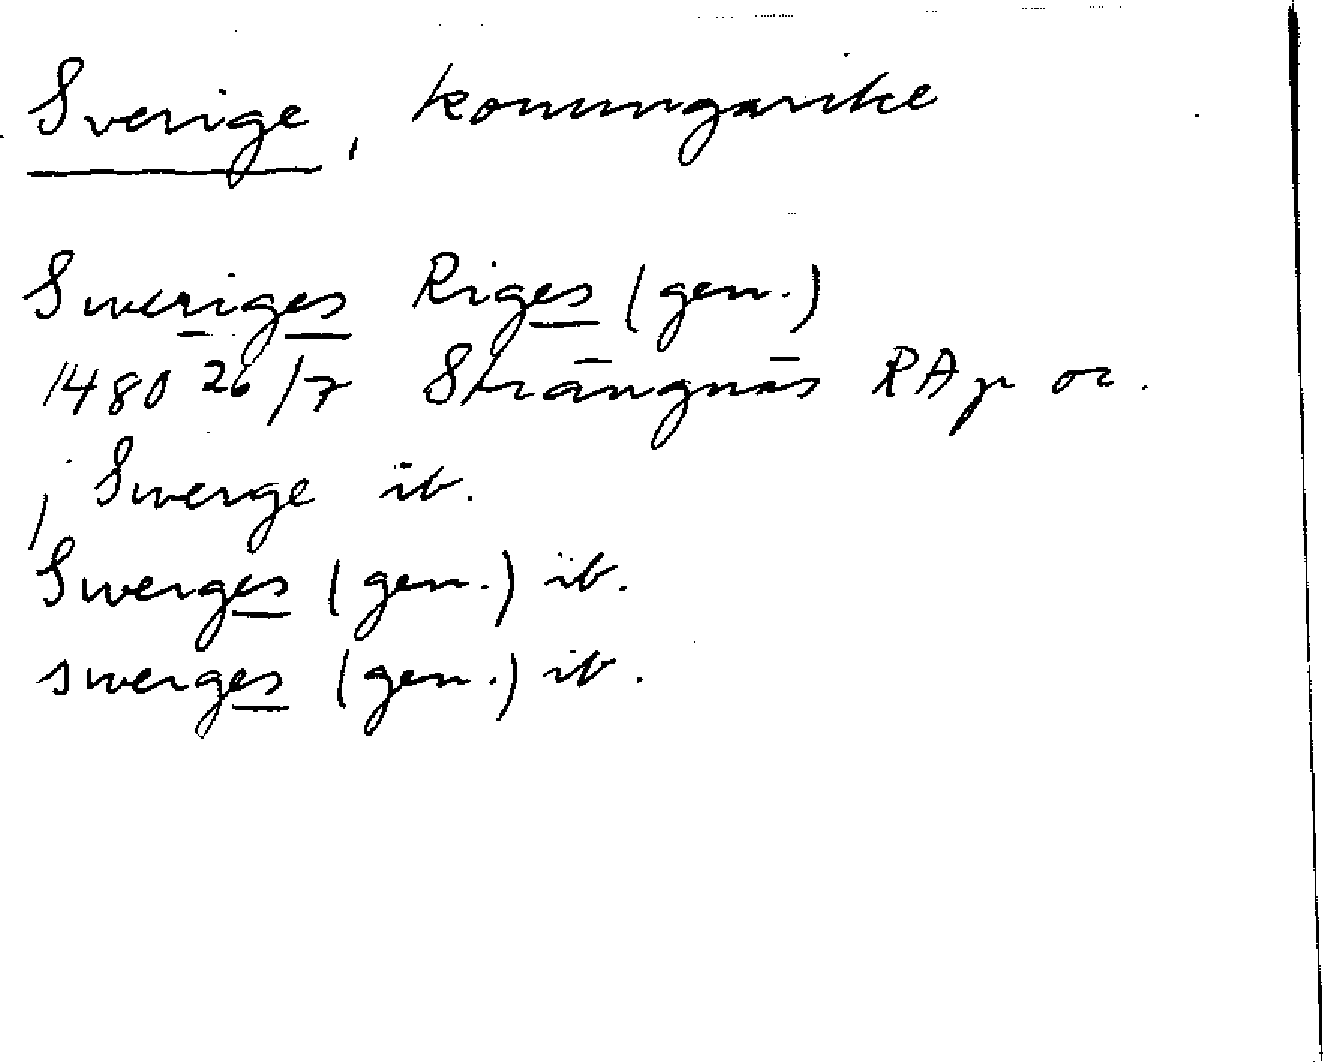 Sverige, konungarike
Sweriges Riges (gen.)
1480 26/7 Strängnäs RAp or.
j Swerge ib.
Swerges (gen.) ib.
swerges (gen.) ib.